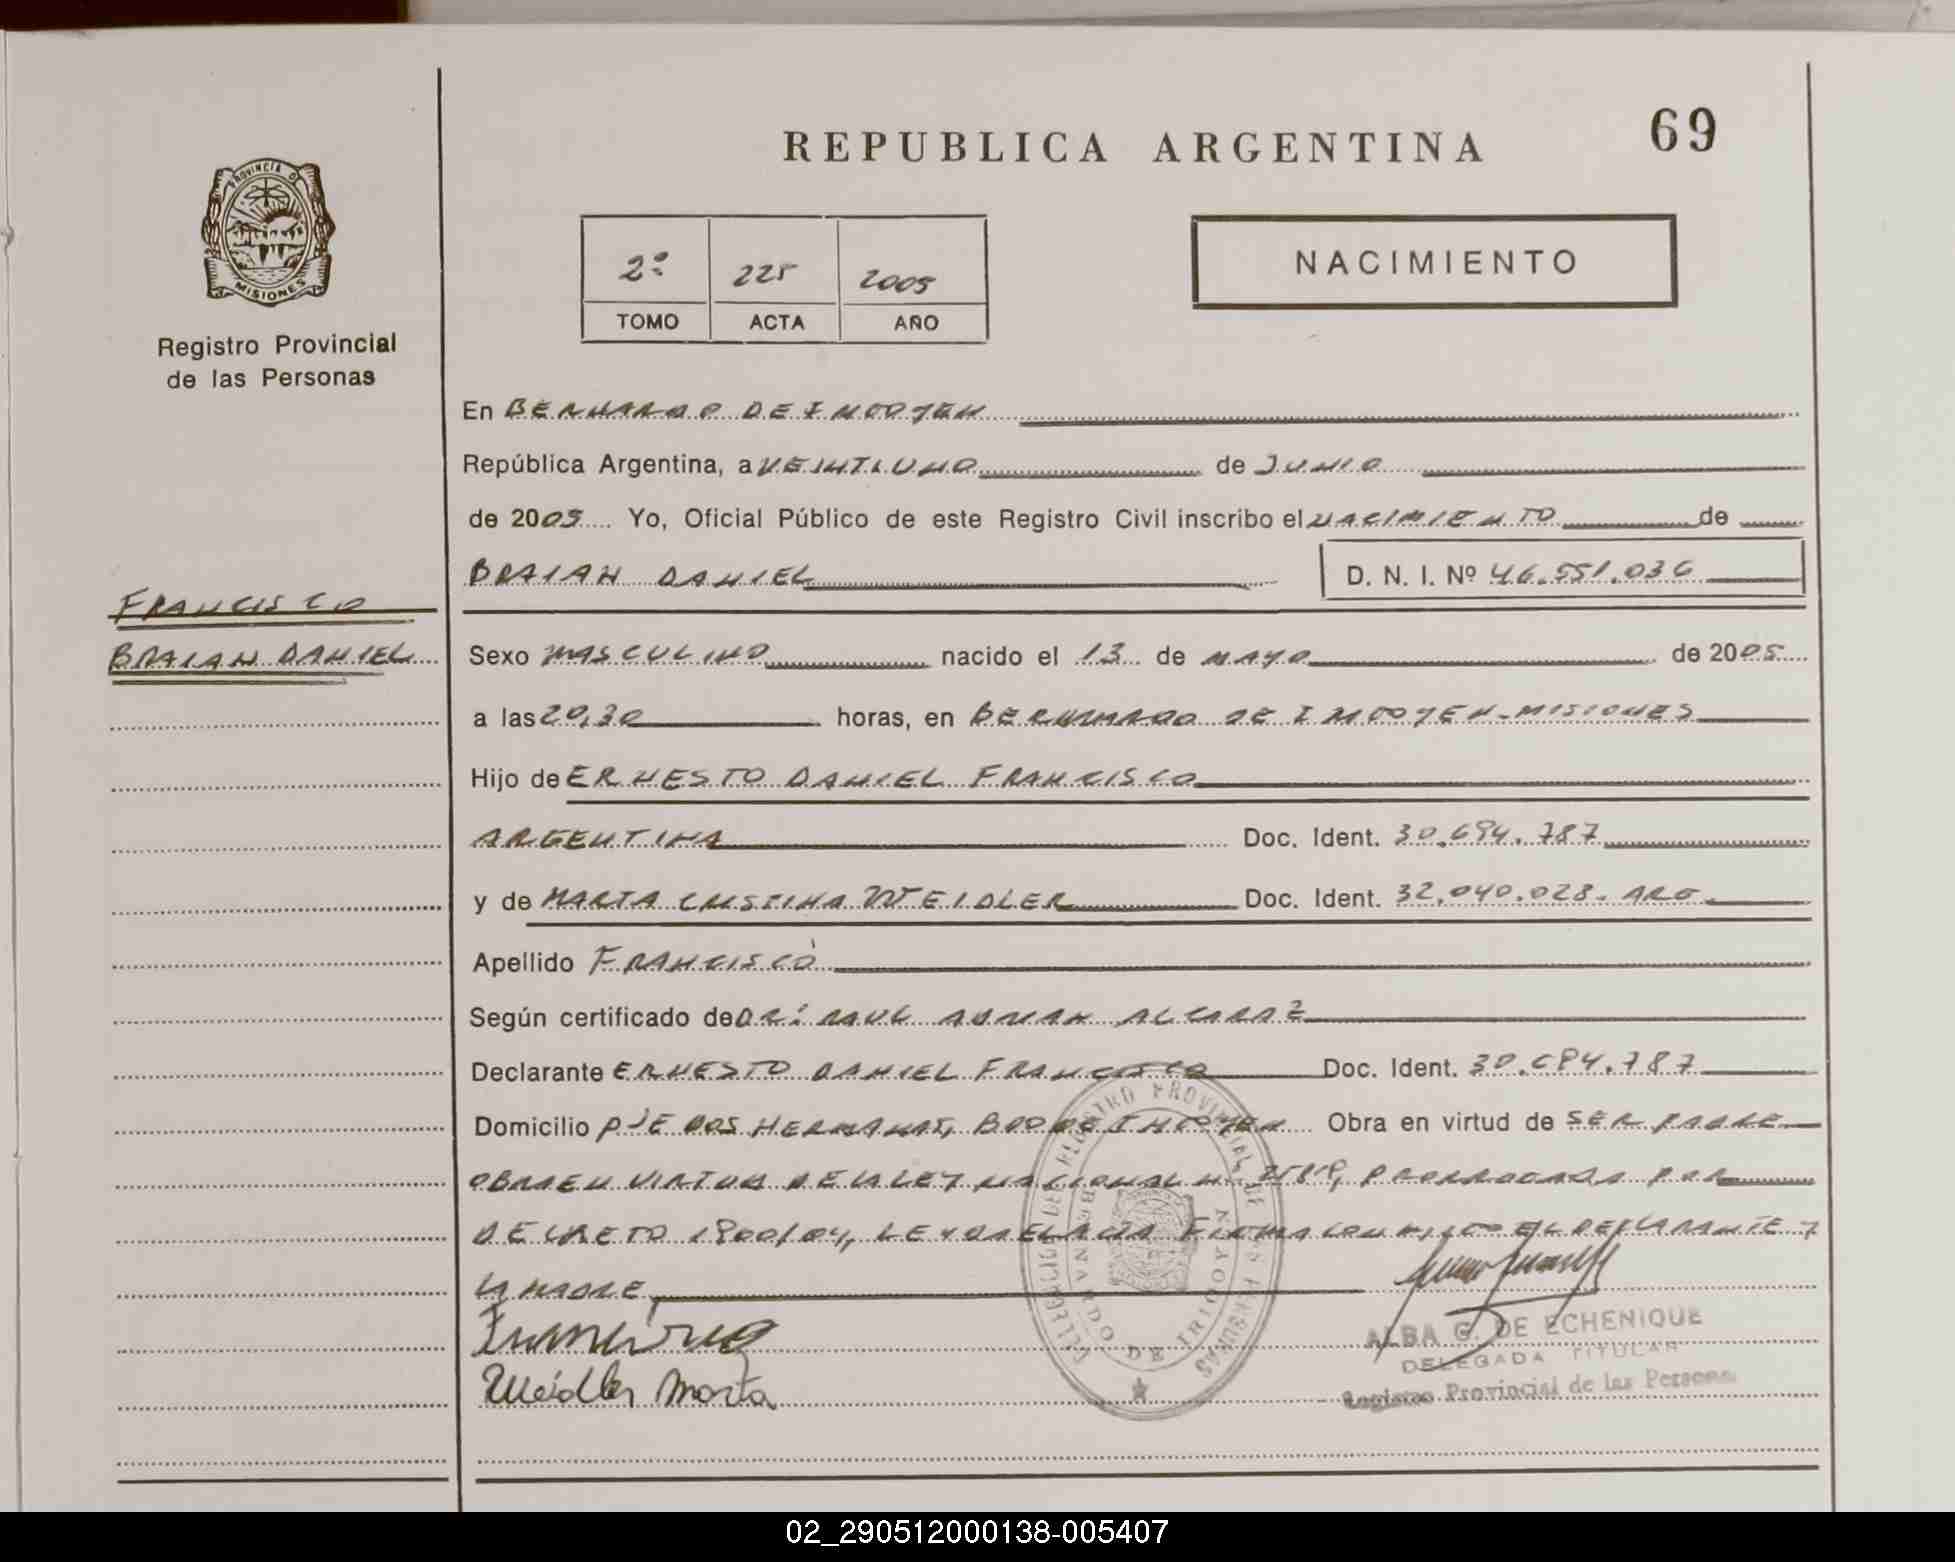 REPUBLICA ARGENTINA
69
PROVINCIA DE
MISIONES
Registro Provincial
de las Personas
2º 225 2005
TOMO ACTA AÑO
NACIMIENTO
En BERNARDO DE IRIGOYEN
República Argentina, a VEINTIUNO de JUNIO
de 2005 Yo, Oficial Público de este Registro Civil inscribo el NACIMIENTO de
BRAIAN DANIEL D. N. I. Nº 46.551.036
FRANCISCO
BRAIAN DANIEL
Sexo MASCULINO nacido el 13 de MAYO de 2005
a las 20,30 horas, en BERNARDO DE IRIGOYEN-MISIONES
Hijo de ERNESTO DANIEL FRANCISCO
ARGENTINA Doc. Ident. 30.694.787
y de MARTA CRISTINA WEIDLER Doc. Ident. 32.040.028. ARG.
Apellido FRANCISCO
Según certificado de DR: RAUL ADRIAN ALCARAZ
Declarante ERNESTO DANIEL FRANCISCO Doc. Ident. 30.694.787
Domicilio PJE DOS HERMANAS, BDO DE IRIGOYEN Obra en virtud de SER PADRE
OBRA EN VIRTUD DE LA LEY NACIONAL Nº PRORROGADA POR
DECRETO 1900/04, LEYDA EL ACTA FIRMA CONMIGO EL DECLARANTE Y
LA MADRE
Francisco
Weidler Marta
DELEGACION DEL REGISTRO PROVINCIAL DE LAS PERSONAS
BERNARDO DE IRIGOYEN
ALBA G. DE ECHENIQUE
DELEGADA TITULAR
Registro Provincial de las Personas
02_290512000138-005407